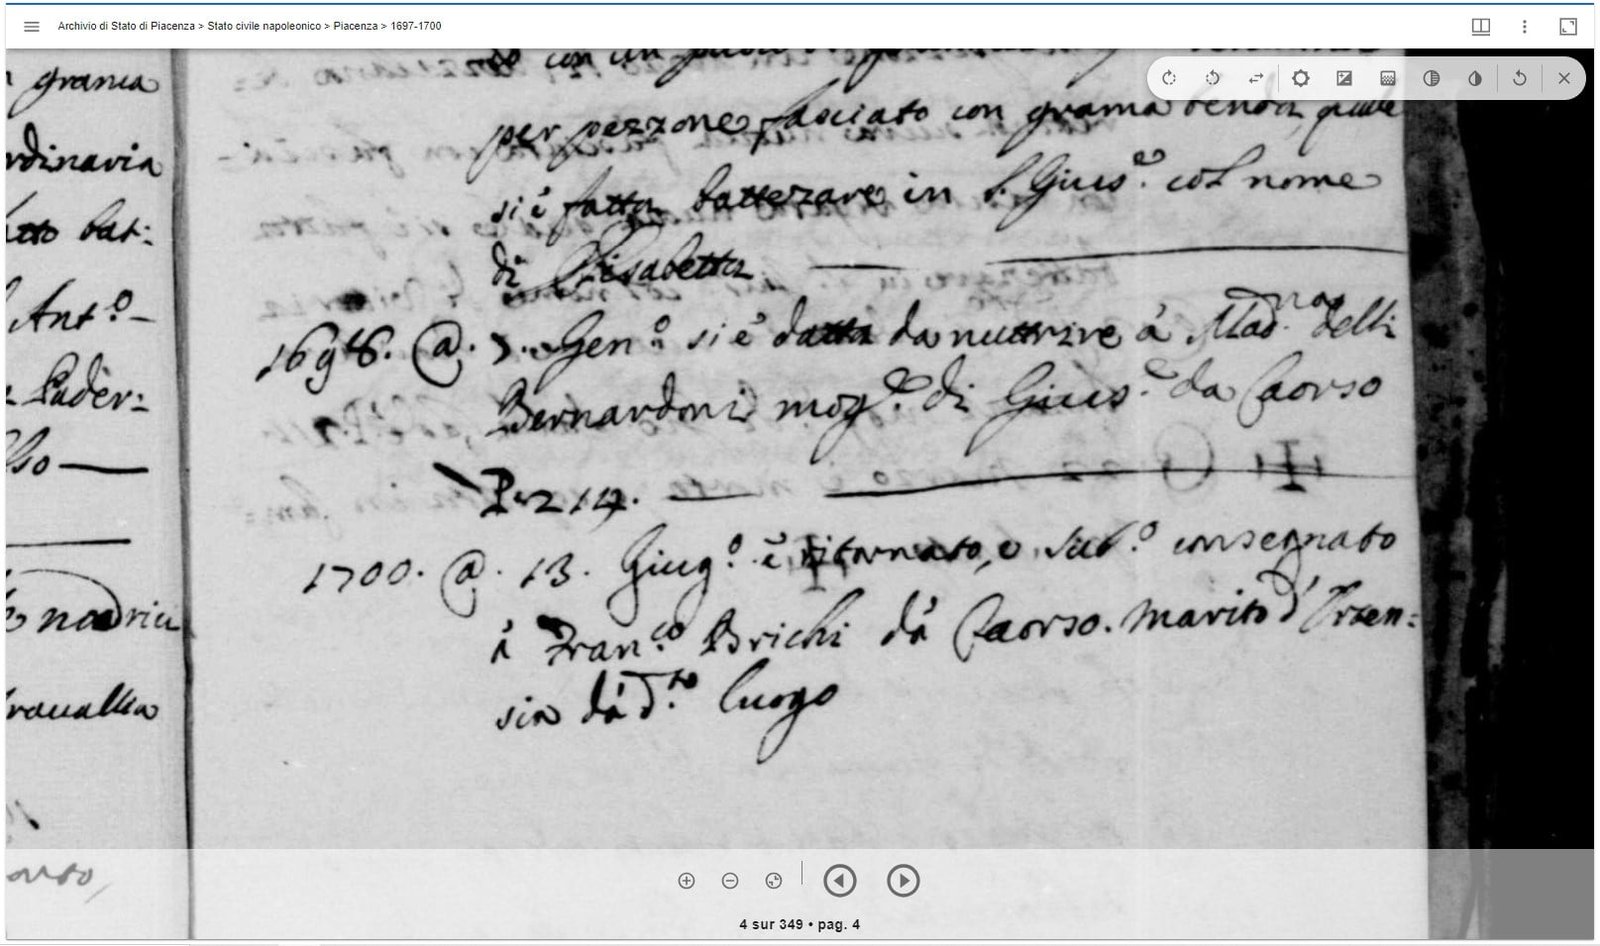 Archivio di Stato di Piacenza > Stato civile napoleonico > Piacenza > 1697-1700
grama
rdinaria
bat:
Ant.º
Pader:
so
nodrici
per pezzone fasciato con grama benda, quale
si è fatta battezare in S. Gius.e col nome
di Elisabetta
1698. @. 3. Gen.º si è datta da nuttrire à Mad.na delli
Bernardoni mog.e di Gius.e da Caorso
P. 214.
1700. @. 13. Giug.º è ritornato, e sub.º consegnato
à Fran.co Brichi dà Caorso. marito d'Orsen:
sia dà d.to luogo
4 sur 349 • pag. 4